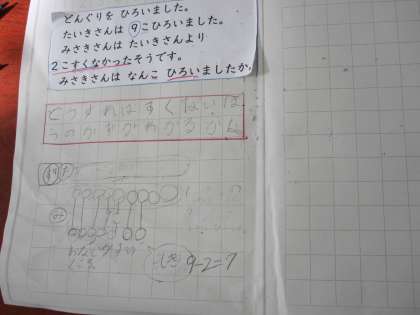 どんぐりを ひろいました。
たいきさんは 9こひろいました。
みさきさんは たいきさんより
2こすくなかったそうです。
みさきさんは なんこ ひろいましたか。
どうすればすくないほ
うのかずがわかるかな
み
しき 9-2=7